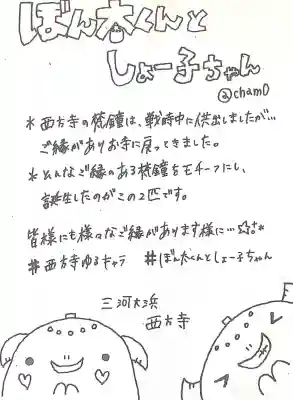 ぼん太くんと
しょー子ちゃん
@cham0
*西方寺の梵鐘は、戦時中に供出しましたが…
ご縁がありお寺に戻ってきました。
*そんなご縁のある梵鐘をモチーフにし、
誕生したのがこの2匹です。
皆様にも様々なご縁があります様に…☆彡*
#西方寺ゆるキャラ #ぼん太くんとしょー子ちゃん
三河大浜
西方寺